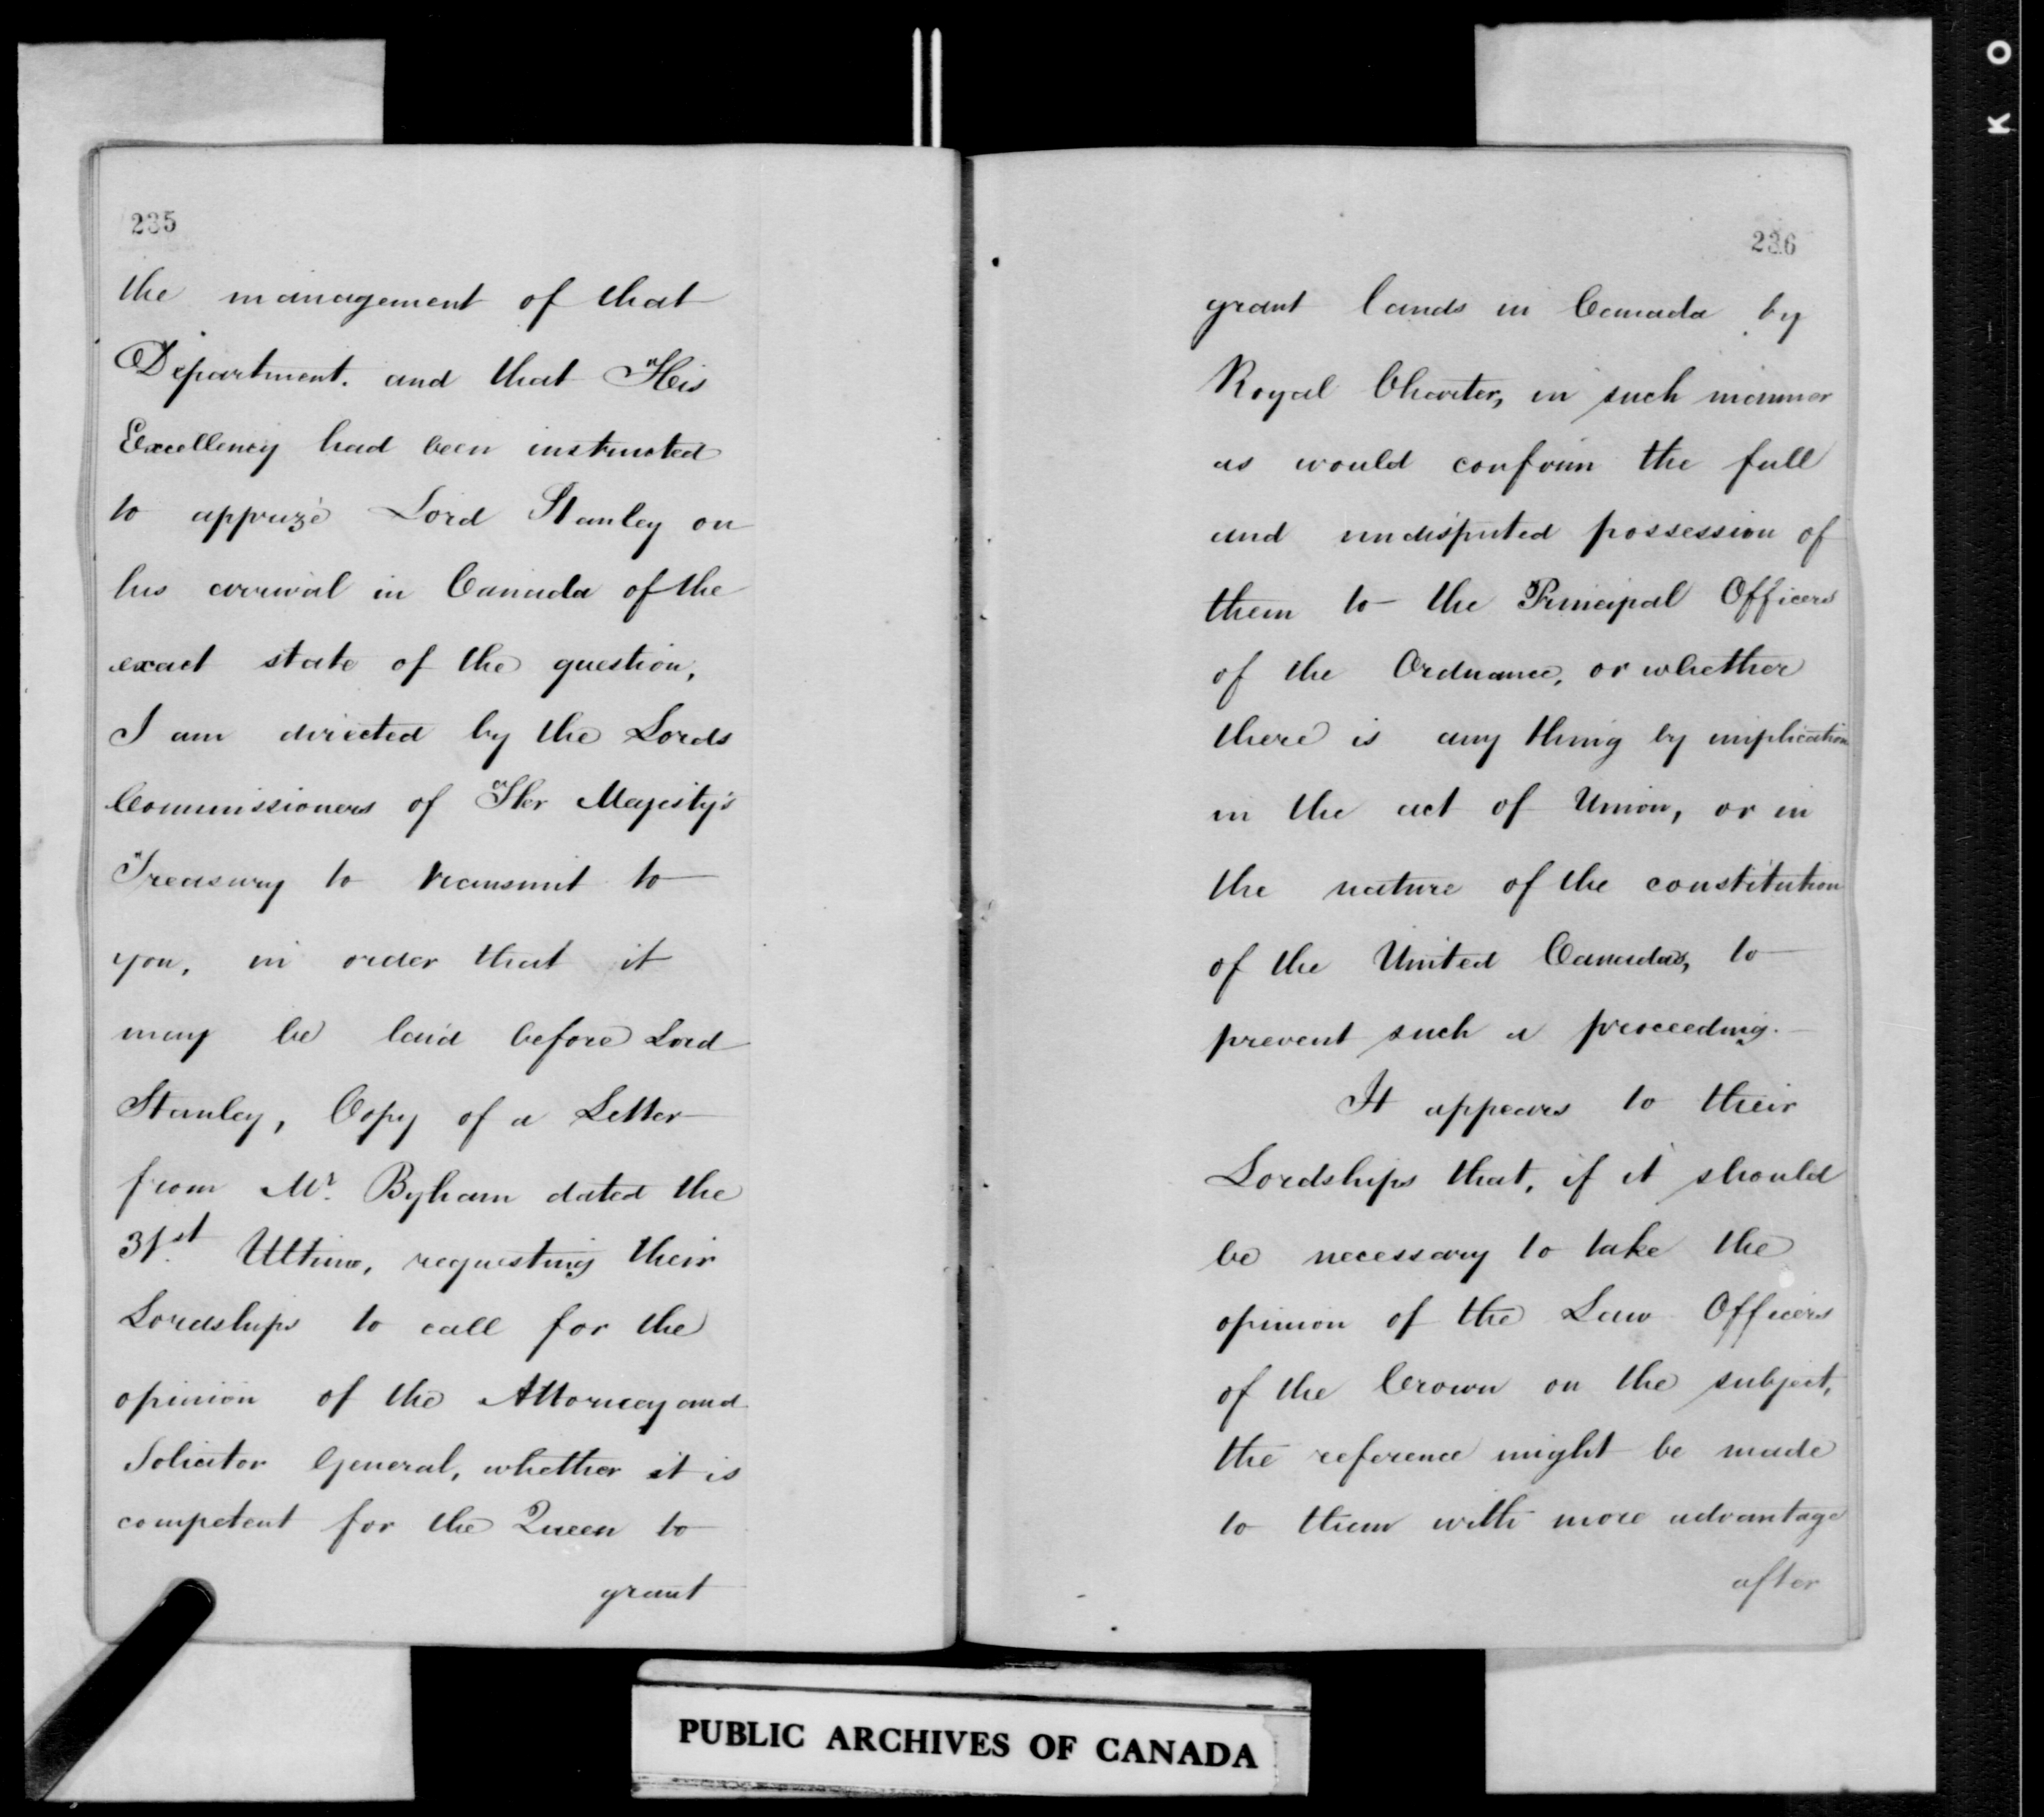 235
the management of that
Department. and that His
Excellency had been instructed
to apprize Lord Stanley on
his arrival in Canada of the
exact state of the question,
I am directed by the Lords
Commissioners of Her Majesty's
Treasury to transmit to
you, in order that it
may be laid before Lord
Stanley, Copy of a Letter
from Mr. Byham dated the
31st Ultimo, requesting their
Lordships to call for the
opinion of the Attorney and
Solicitor General, whether it is
competent for the Queen to
grant
236
grant lands in Canada by
Royal Charter, in such manner
as would confirm the full
and undisputed possession of
them to the Principal Officers
of the Ordnance, or whether
there is any thing by implication
in the act of Union, or in
the nature of the constitution
of the United Canadas, to
prevent such a proceeding.
It appears to their
Lordships that, if it should
be necessary to take the
opinion of the Law Officers
of the Crown on the subject,
the reference might be made
to them with more advantage
after
PUBLIC ARCHIVES OF CANADA
K O